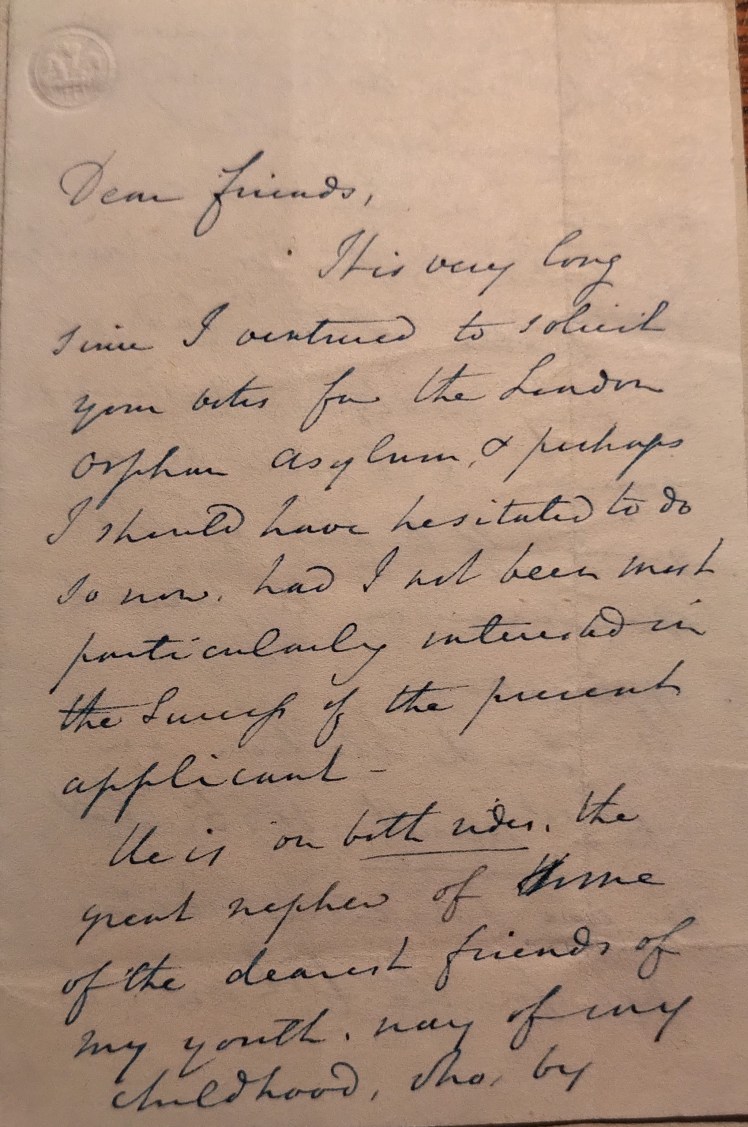 Dear friends,
It is very long
since I ventured to solicit
your votes for the London
Orphan Asylum, & perhaps
I should have hesitated to do
so now, had I not been most
particularly interested in
the success of the present
applicant -
He is on both sides, the
great nephew of some
of the dearest friends of
my youth, nay of my
childhood, who, by